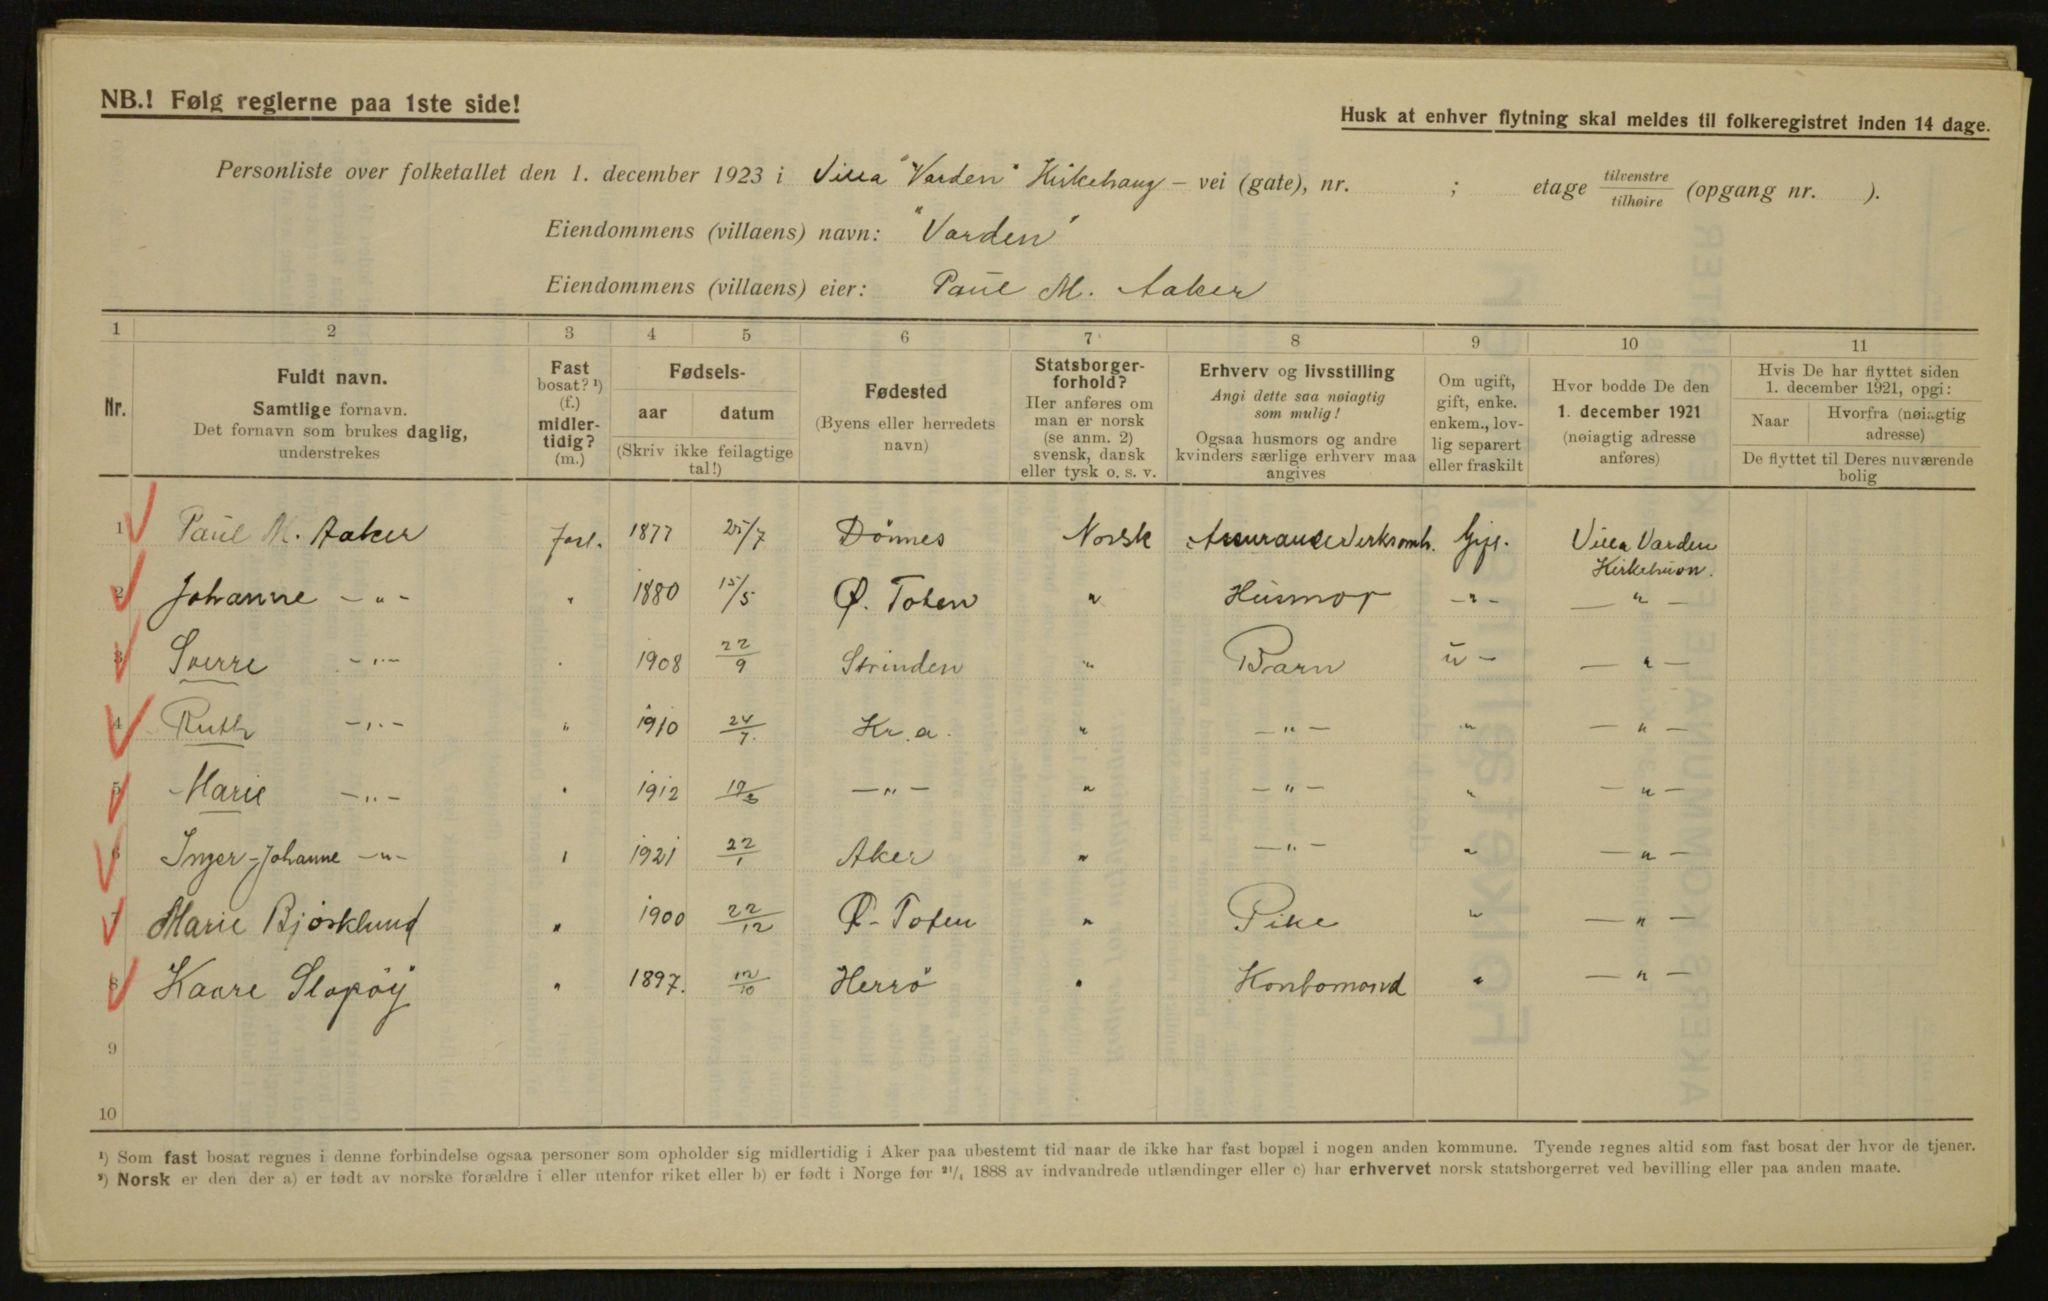 NB.! Følg reglerne paa 1ste side!
Husk at enhver flytning skal meldes til folkeregistret inden 14 dage.
Personliste over folketallet den 1. december 1923 i Villa "Varden" Kirkehaug – vei (gate), nr. ; etage tilvenstre / tilhøire (opgang nr. ).
Eiendommens (villaens) navn: "Varden"
Eiendommens (villaens) eier: Paul M. Aaker
1 2 3 4 5 6 7 8 9 10 11
Nr.
Fuldt navn.
Samtlige fornavn.
Det fornavn som brukes daglig,
understrekes
Fast
bosat? ¹)
(f.)
midler-
tidig?
(m.)
Fødsels-
aar datum
(Skriv ikke feilagtige
tal!)
Fødested
(Byens eller herredets
navn)
Statsborger-
forhold?
Her anføres om
man er norsk
(se anm. 2)
svensk, dansk
eller tysk o. s. v.
Erhverv og livsstilling
Angi dette saa nøiagtig
som mulig!
Ogsaa husmors og andre
kvinders særlige erhverv maa
angives
Om ugift,
gift, enke.
enkem., lov-
lig separert
eller fraskilt
Hvor bodde De den
1. december 1921
(nøiagtig adresse
anføres)
Hvis De har flyttet siden
1. december 1921, opgi:
Naar
Hvorfra (nøiagtig
adresse)
De flyttet til Deres nuværende
bolig
1 Paul M. Aaker 1877 25/7 Dönnes Norsk Assurance Verksomh. Gift. Villa Varden
Kirkehaven.
2 Johanne –"– " 1880 15/5 Ø. Toten " Husmor –"– –"–
3 Sverre –"– 1908 22/9 Strinden " Barn u – –"–
4 Ruth –"– " 1910 24/7. Kr.a. " –"– " –"–
5 Marie –"– " 1912 –"– " –"– " –"–
6 Inger-Johanne –"– " 1921 22/1 Aker " –"– " –"–
7 Marie Bjørklund " 1900 22/12 Ø. Toten " Pike " –"–
8 Kaare Slapöy " 1897. 12/10 Herrö " Kontomand " –"–
9
10
¹) Som fast bosat regnes i denne forbindelse ogsaa personer som opholder sig midlertidig i Aker paa ubestemt tid naar de ikke har fast bopæl i nogen anden kommune. Tyende regnes altid som fast bosat der hvor de tjener.
²) Norsk er den der a) er født av norske forældre i eller utenfor riket eller b) er født i Norge før ²¹/₄ 1888 av indvandrede utlændinger eller c) har erhvervet norsk statsborgerret ved bevilling eller paa anden maate.